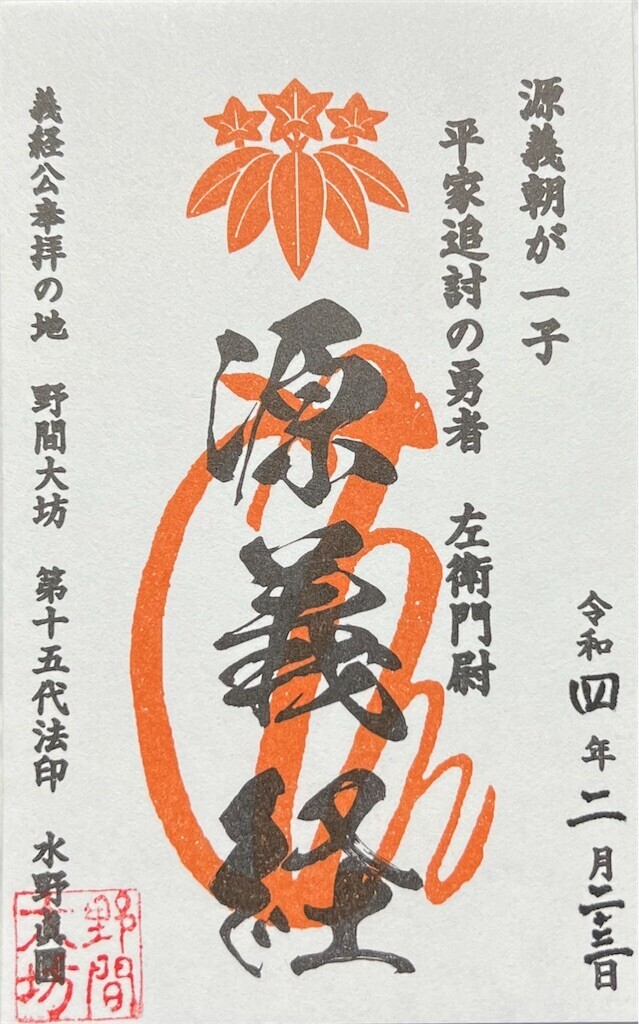 令和四年二月二十三日
源義朝が一子
平家追討の勇者 左衛門尉
源義経
義経公奉拝の地 野間大坊 第十五代法印 水野眞圓
野間
大坊